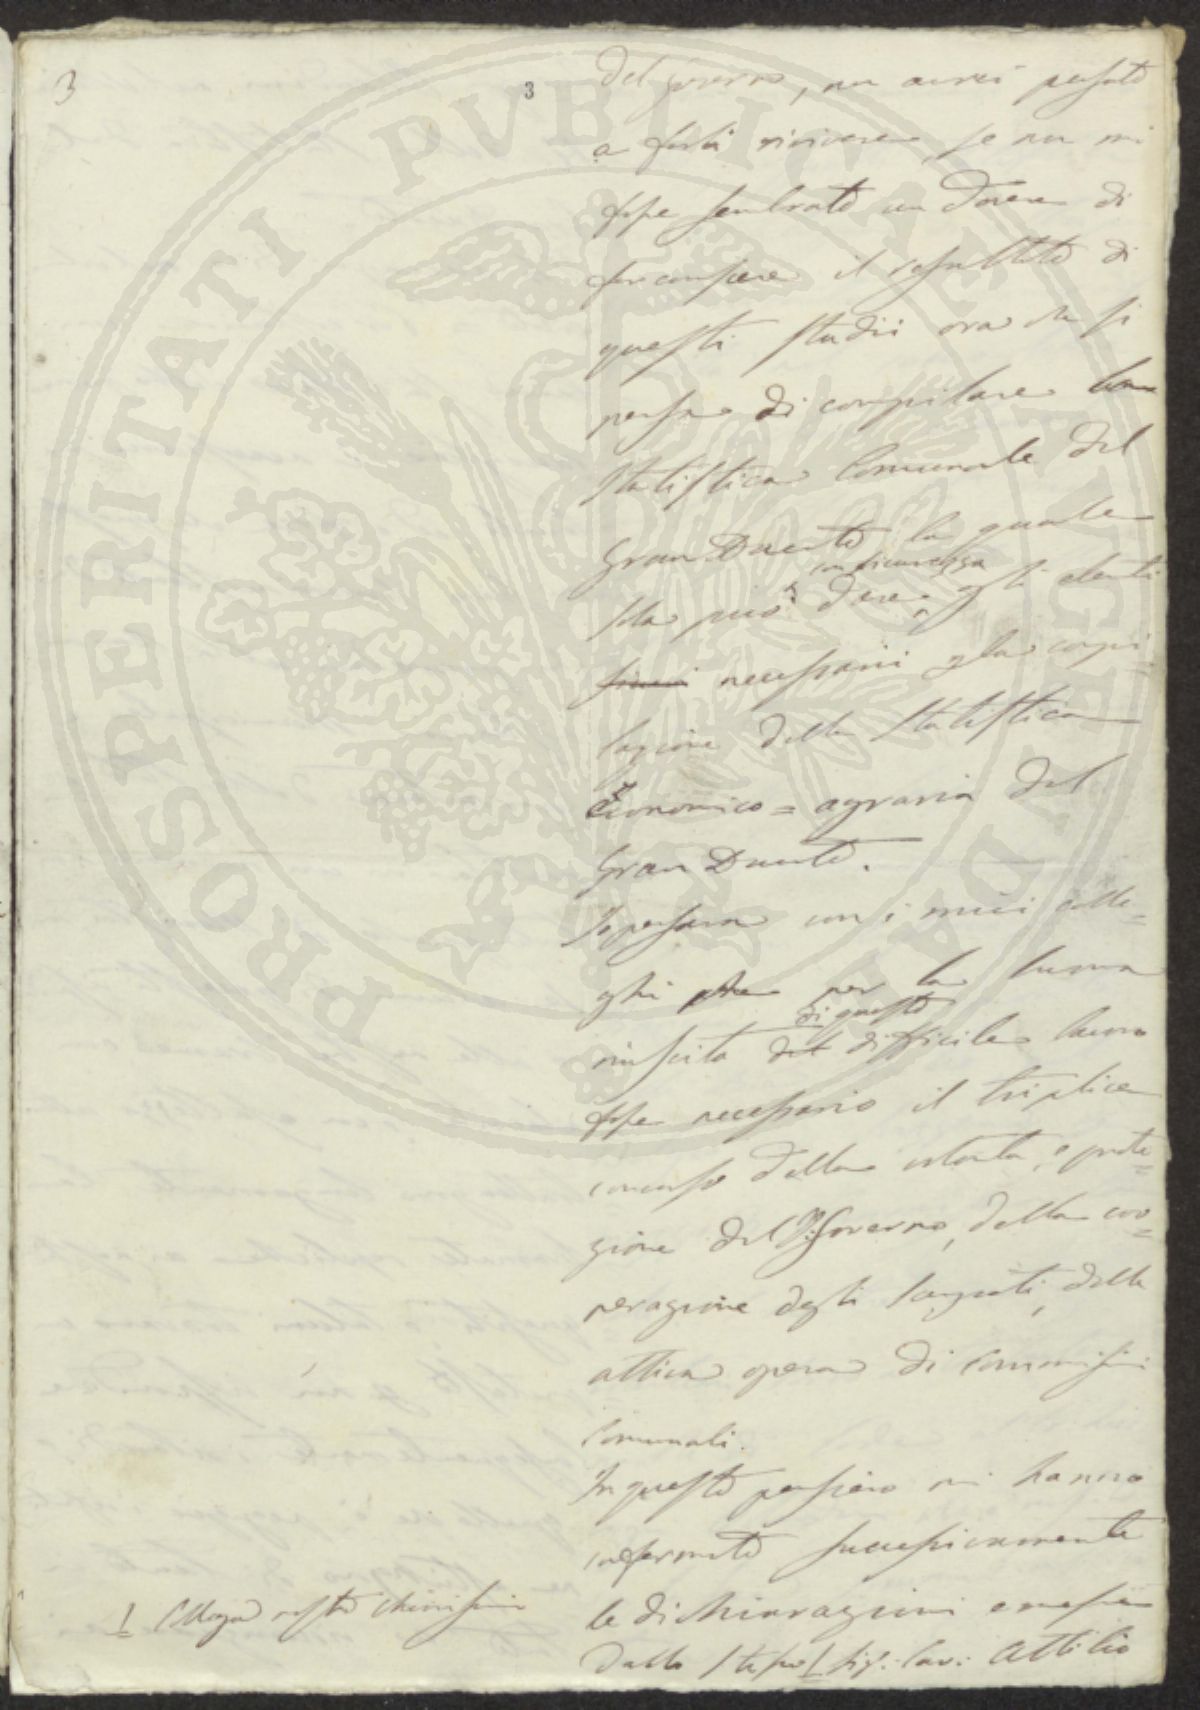 3
3
del Governo, non avrei pensato
a farli rivivere, se non mi
fosse sembrato un dovere di
far conoscere il resultato di
questi studii ora che si
pensa di compilare la
statistica Comunale del
Gran Ducato la quale
sola può dare con sicurezza gli elementi
necessarii alla compi=
lazione della statistica
Economico=agraria del
Gran Ducato.
Io pensava con i miei colle=
ghi che per la buona
riuscita di questo difficile lavoro
fosse necessario il triplice
concorso della volontà, e prote=
zione del R. Governo, della coo=
perazione degli Scienziati, della
attiva opera di Commissioni
Comunali.
In questo pensiero mi hanno
confermato successivamente
le dichiarazioni emesse
dallo stesso 1 Sig: Cav: Attilio
1 Collega nostro chiarissimo
PROSPERITATI PUBLICAE AUGENDAE